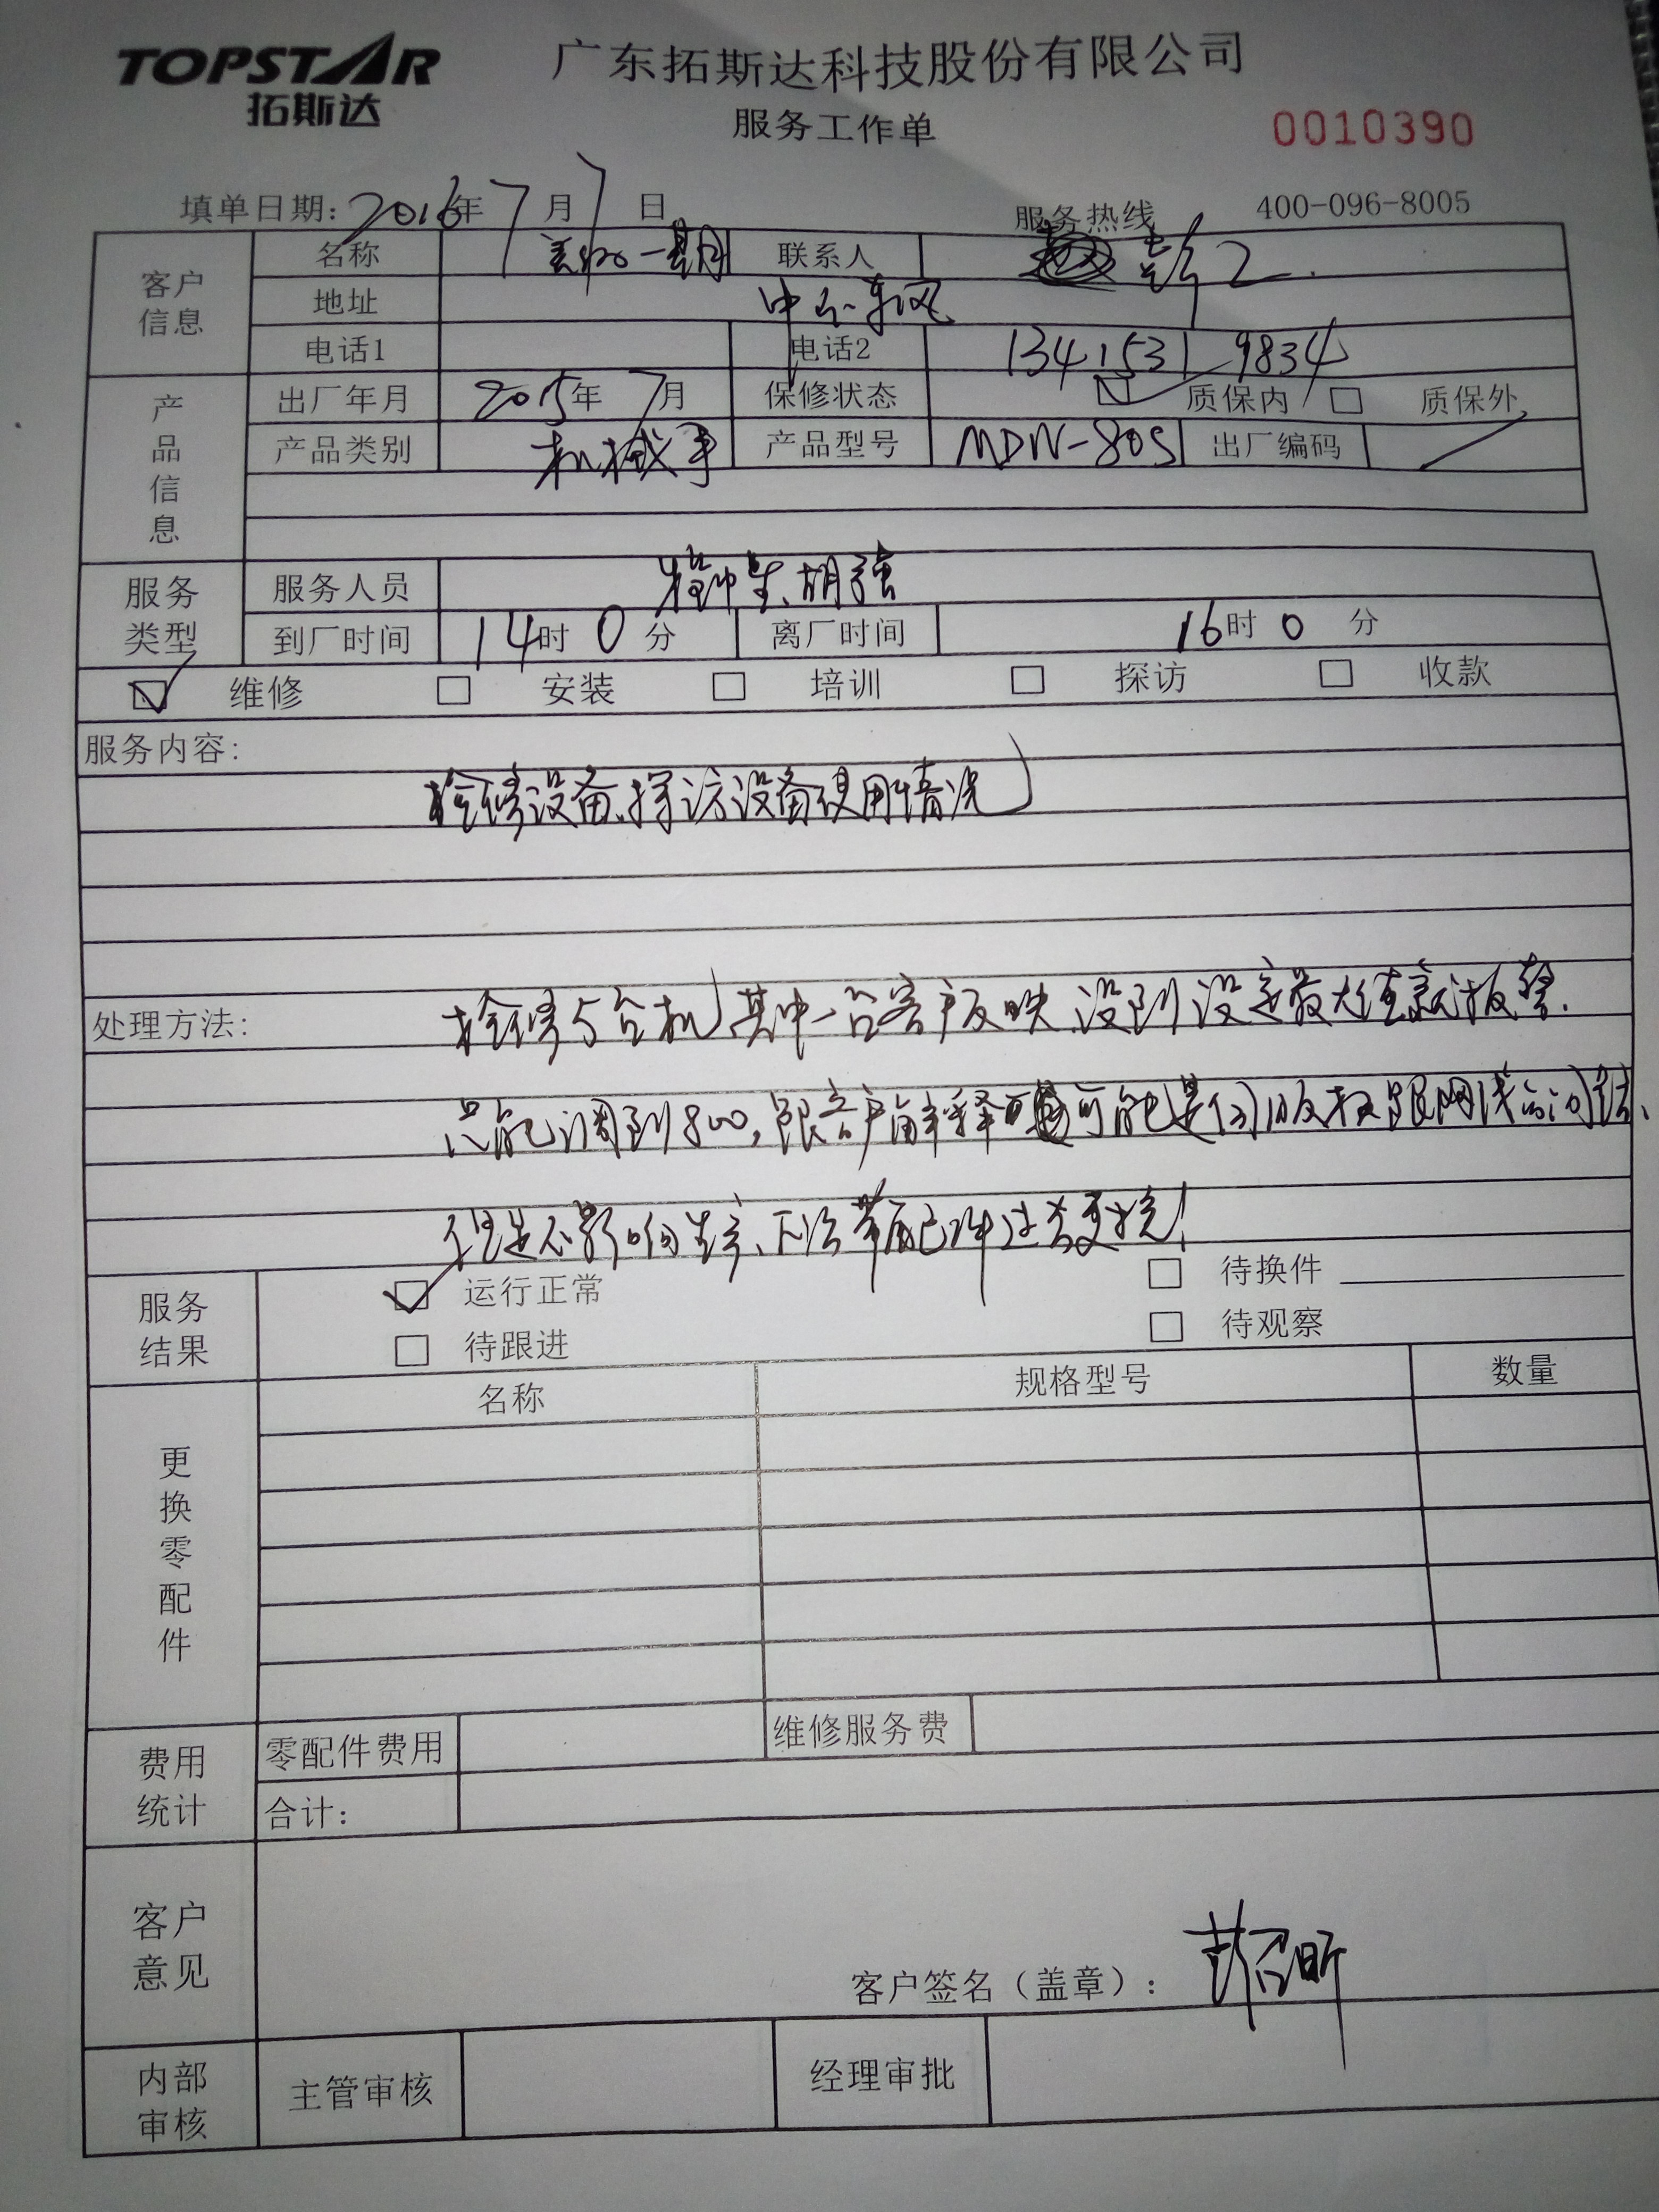 TOPSTAR
拓斯达
广东拓斯达科技股份有限公司
服务工作单
0010390
填单日期: 2016年 7月 7日 服务热线 400-096-8005
客户信息
名称 一期 联系人 彭工
地址 中山东风
电话1 电话2 13415319834
产品信息
出厂年月 2015年 7月 保修状态 质保内 质保外
产品类别 机械手 产品型号 MDW-80S 出厂编码
服务类型
服务人员 程中 、胡强
到厂时间 14时 0分 离厂时间 16时 0分
维修 安装 培训 探访 收款
服务内容:
检修设备、探访设备使用情况
处理方法: 检修5台机,其中一台客户反映、没到设定最大值就报警.
只能调到800,跟客户解释可能是伺服板跟网线的问题、
但是不影响生产、下次带配件过去更换!
服务结果
运行正常 待换件
待跟进 待观察
更换零配件
名称 规格型号 数量
费用统计
零配件费用 维修服务费
合计:
客户意见
客户签名（盖章）: 彭召昕
内部审核
主管审核 经理审批